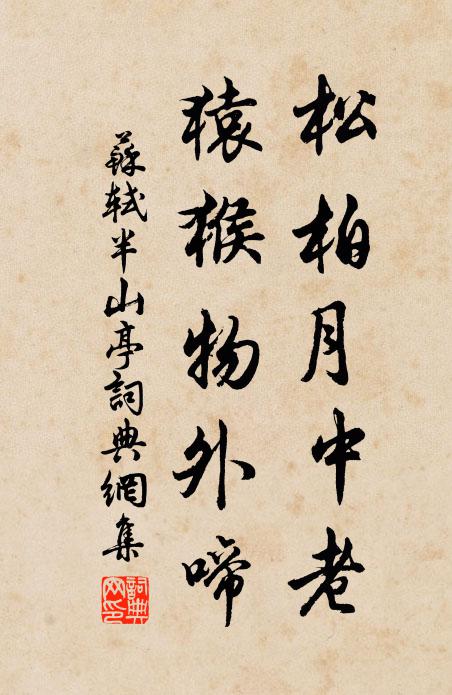 松柏月中老
猿猴物外啼
蘇軾半山亭詞典網集
詞典網印